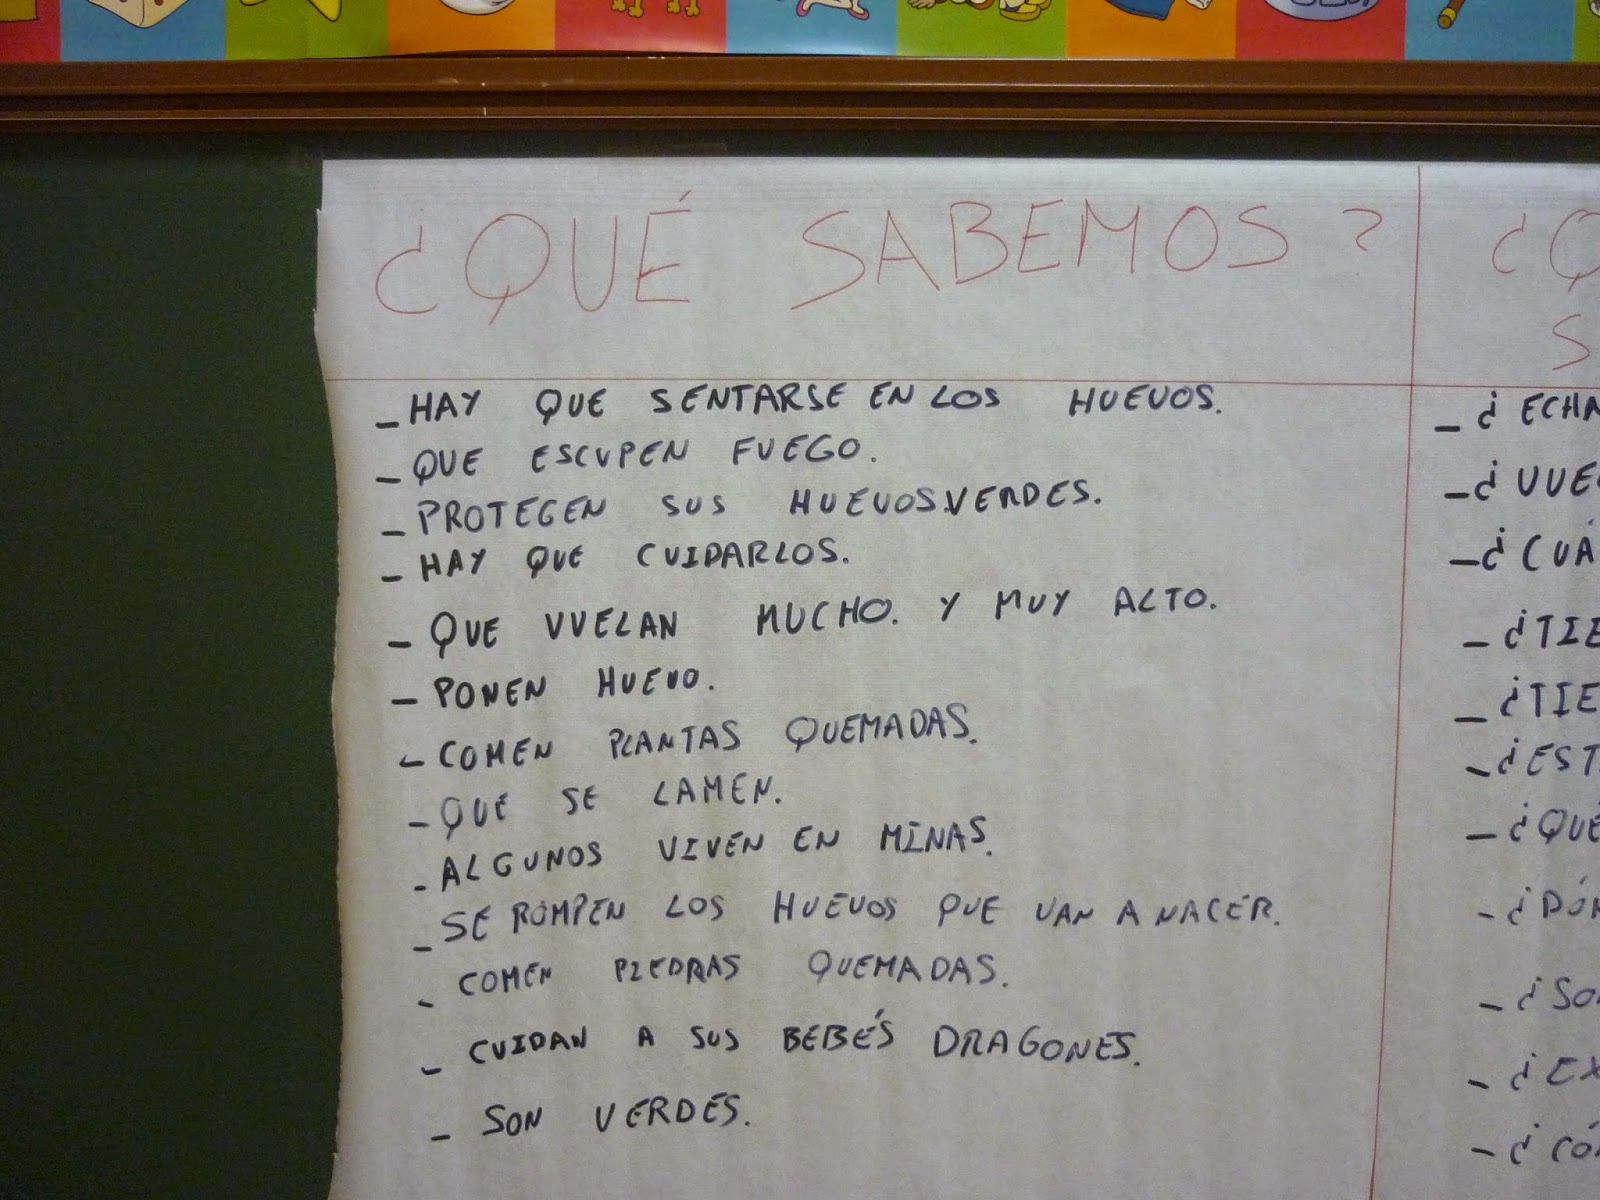 ¿QUÉ SABEMOS?
_ HAY QUE SENTARSE EN LOS HUEVOS.
_ QUE ESCUPEN FUEGO.
_ PROTEGEN SUS HUEVOS.VERDES.
_ HAY QUE CUIDARLOS.
_ QUE VUELAN MUCHO. Y MUY ALTO.
_ PONEN HUEVO.
_ COMEN PLANTAS QUEMADAS.
_ QUE SE LAMEN.
_ ALGUNOS VIVEN EN MINAS.
_ SE ROMPEN LOS HUEVOS QUE VAN A NACER.
_ COMEN PIEDRAS QUEMADAS.
_ CUIDAN A SUS BEBÉS DRAGONES.
_ SON VERDES.
¿Q
S
_ ¿ECHA
_ ¿VUE
_ ¿CUÁ
_ ¿TIE
_ ¿TIE
_ ¿EST
_ ¿QUÉ
_ ¿DÓN
_ ¿SO
_ ¿EX
_ ¿CÓ